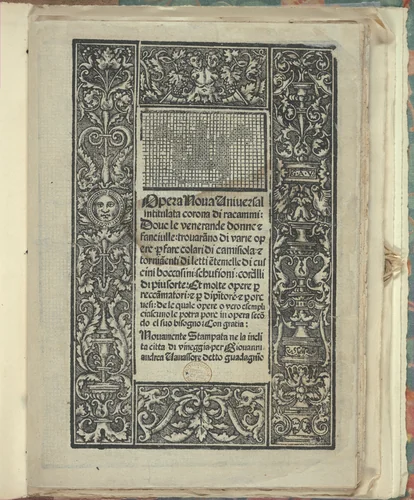 Opera Nova Universal
intitulata corona di racammi:
Dove le venerande donne e
fanciulle: trovarãno di varie op
ere p fare colari di camisiola e
torniamenti di letti e
di cus
cini boccasini schufioni: cordlli
di piu sorte: Et molte opere p
recamatori: e p dipitore e p orc
vesi: de le quale opere o vero esempli
ciascuno le potra porc in opera secõ
do el suo bisogno: Con gratia:
Novamente Stampata ne la incli
ta citta di vineggia per Giovann
andrea Vavassore detto guadagnio